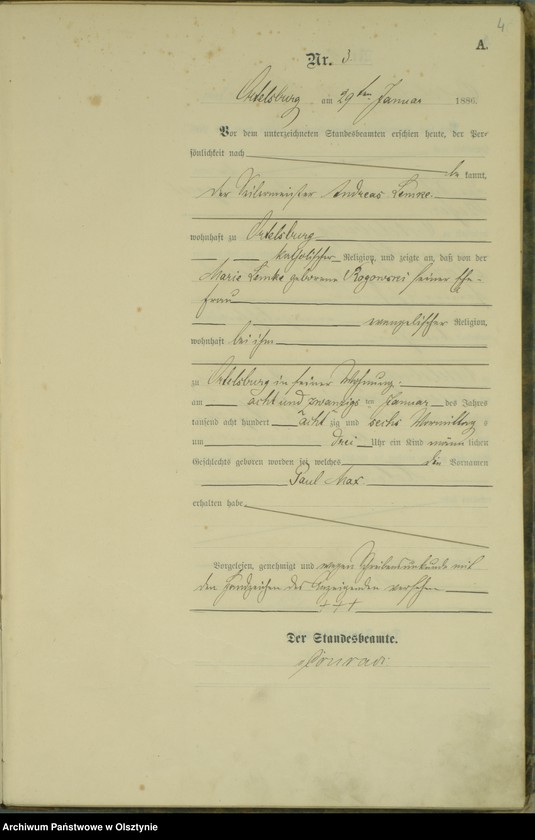 4
A.
Nr. 3
Ortelsburg am 29ten Januar 1886.
Vor dem unterzeichneten Standesbeamten erschien heute, der Per-
sönlichkeit nach
be kannt,
der Seilermeister Andreas Lemke
wohnhaft zu Ortelsburg
katholischer Religion, und zeigte an, daß von der
Marie Lemke geborene Rogowski seiner Ehe-
frau
evangelischer Religion,
wohnhaft bei ihm
zu Ortelsburg in seiner Wohnung
am acht und zwanzigs ten Januar des Jahres
tausend acht hundert acht zig und sechs Vormittag s
um drei Uhr ein Kind männ lichen
Geschlechts geboren worden sei, welches die Vornamen
Paul Max
erhalten habe
Vorgelesen, genehmigt und wegen Schreibensunkunde mit
den Handzeichen des Anzeigenden versehen
+++
Der Standesbeamte.
Conradi
Archiwum Państwowe w Olsztynie